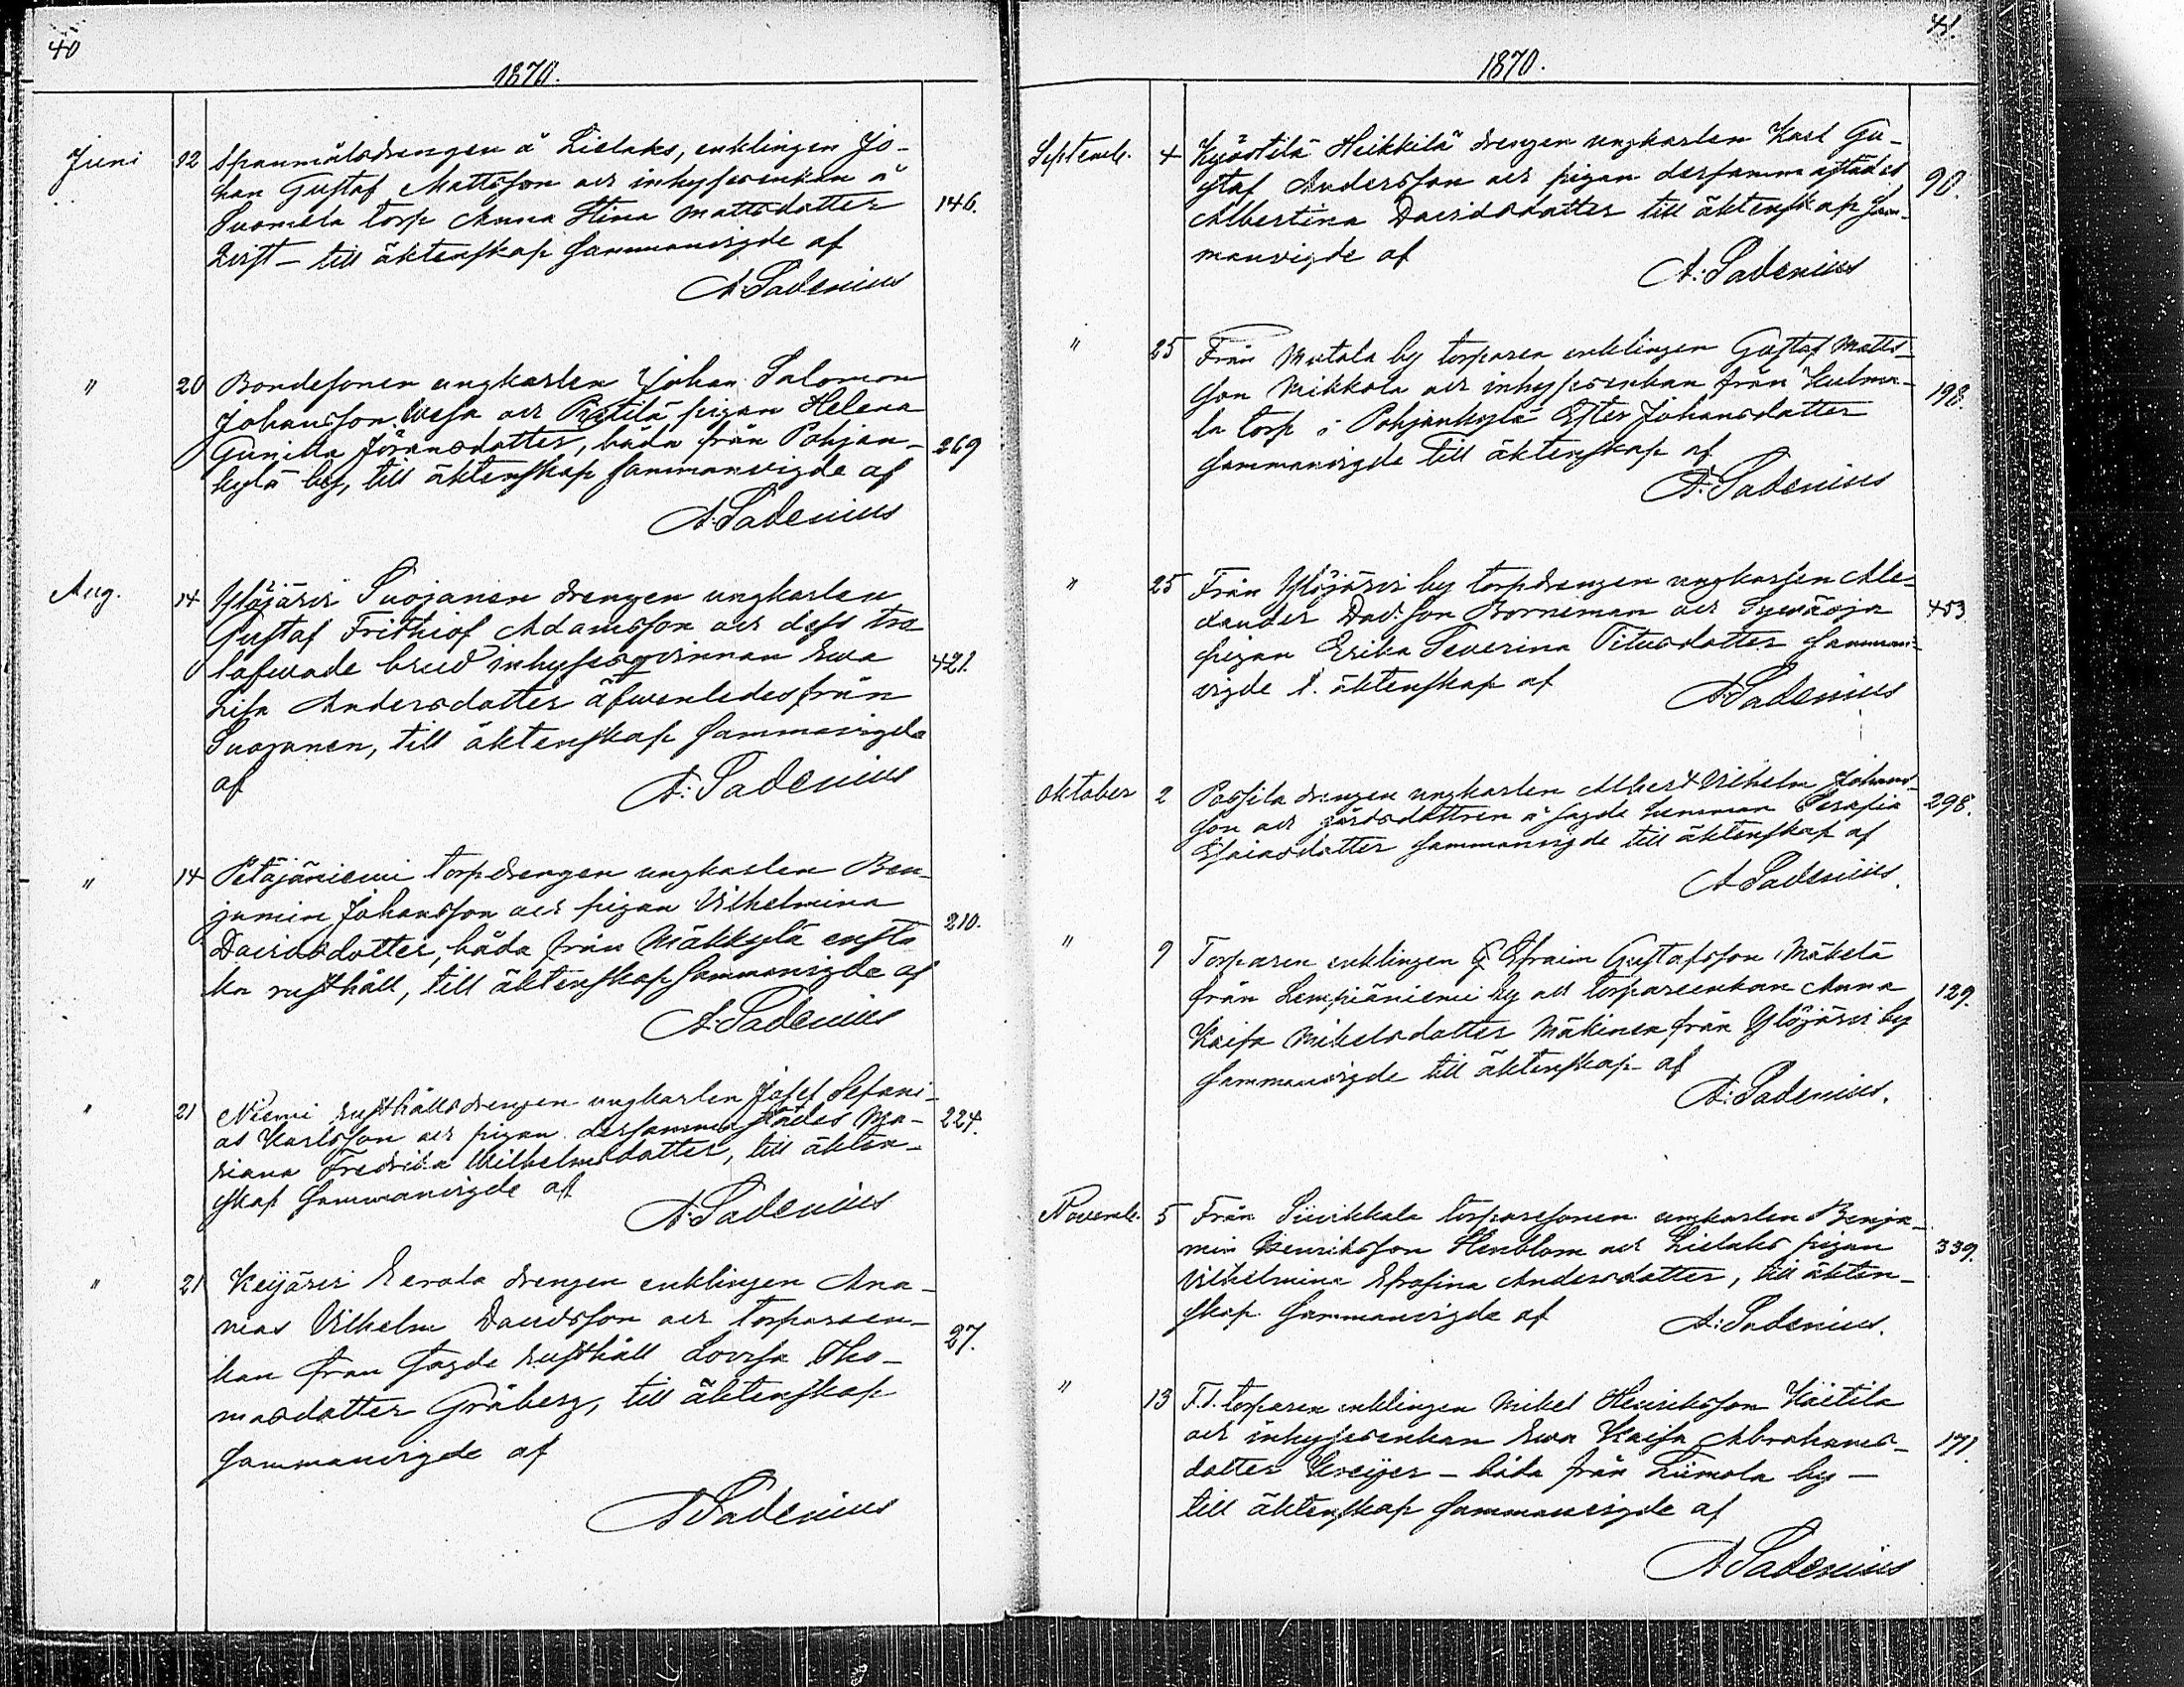 40
1870.
Juni 12 Spanmålsdrengen å Lielaks, enklingen Jo-
han Gustaf Mattsson och inhysesenkan å
Suomela torp Anna Stina Mattsdotter 146.
Qvist – till äktenskap sammanvigde af
A. Sadenius
" 20 Bondesonen ungkarlen Johan Salomon
Johansson Wesa och Pigan Helena
Gunilla Jöransdotter, båda från Pohjan- 269
kylä by, till äktenskap sammanvigde af
A. Sadenius
Aug. 14 Ylöjärvi Suojanen drengen ungkarlen
Gustaf Frithiof Adamsson och dess tro
lofwade brud inhysesqvinnan Ewa 421.
Lisa Andersdotter äfwenledes från
Suojanen, till äktenskap sammanvigde
af A. Sadenius
" 14 Petäjäniemi torpdrengen ungkarlen Ben-
jamin Johansson och pigan Vilhelmina
Davidsdotter, båda från Mäkkylä ensta 210.
ka rusthåll, till äktenskap sammanvigde af
A. Sadenius
" 21 Niemi rusthållsdrengen ungkarlen Josef Sefani-
as Karlsson och pigan dersammastädes Ma- 224.
riana Fredrika Wilhelmsdotter, till äkten-
skap sammanvigde af
A. Sadenius
" 21 Keijärvi Eerola drengen enklingen Ana-
nias Vilhelm Davidsson och torpareen-
kan från sagde rusthåll Lovisa Tho- 27.
masdotter Gråberg, till äktenskap
sammanvigde af
A Sadenius
41.
1870.
Septemb. 4 Kyöstilä Heikkilä drengen ungkarlen Karl Gu-
staf Andersson och pigan dersammastädes 90.
Albertina Davidsdotter till äktenskap sam-
manvigde af
A. Sadenius
" 25 Från Mutala by torparen enklingen Gustaf Matts-
son Mikkola och inhysesenkan från Kulma- 198.
la torp i Pohjankylä Ester Johansdotter
sammanvigde till äktenskap af
A. Sadenius
" 25 Från Ylöjärvi by torpdrengen ungkarlen Ale-
xander Dav.son Borneman och Sywäoja 453
pigan Erika Severina Titusdotter samman-
vigde t. äktenskap af
A. Sadenius
Oktober 2 Possila drengen ungkarlen Albert Vilhelm Johans-
son och gårdsdottren å sagde hemman Serafia 298.
Esaiasdotter sammanvigde till äktenskap af
A Sadenius.
" 9 Torparen enklingen Efraim Gustafsson Mäkelä
från Lempiäniemi by och torpareenkan Anna 129.
Kaisa Mikelsdotter Mäkinen från Ylöjärvi by
sammanvigde till äktenskap af
A. Sadenius.
Novemb. 5 Från Siivikkala torparesonen ungkarlen Benja-
min Henriksson Henblom och Lielaks pigan 339.
Vilhelmina Efrosina Andersdotter, till äkten-
skap sammanvigde af
A. Sadenius.
" 13 F.d. torparen enklingen Mikel Henriksson Köttilä
och inhysesenkan Ewa Kaisa Abrahams- 171.
dotter Kreijer – båda från Liimola by –
till äktenskap sammanvigde af
A Sadenius